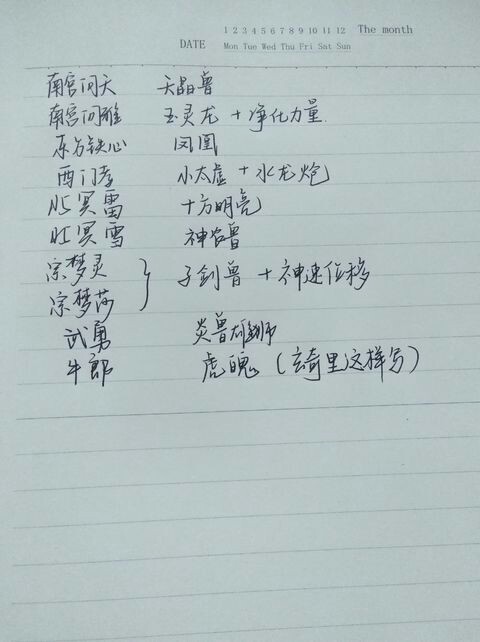 1 2 3 4 5 6 7 8 9 10 11 12 The month
DATE Mon Tue Wed Thu Fri Sat Sun
南宫问天 天晶兽
南宫问雅 玉灵龙 + 净化力量
东方铁心 凤凰
西门孝 小太虚 + 水龙炮
北冥雷 十方明亮
北冥雪 神农兽
宗梦灵 } 子剑兽 + 神速位移
宗梦莎
武勇 炎兽雄狮
牛郎 虎魄 (这样写)